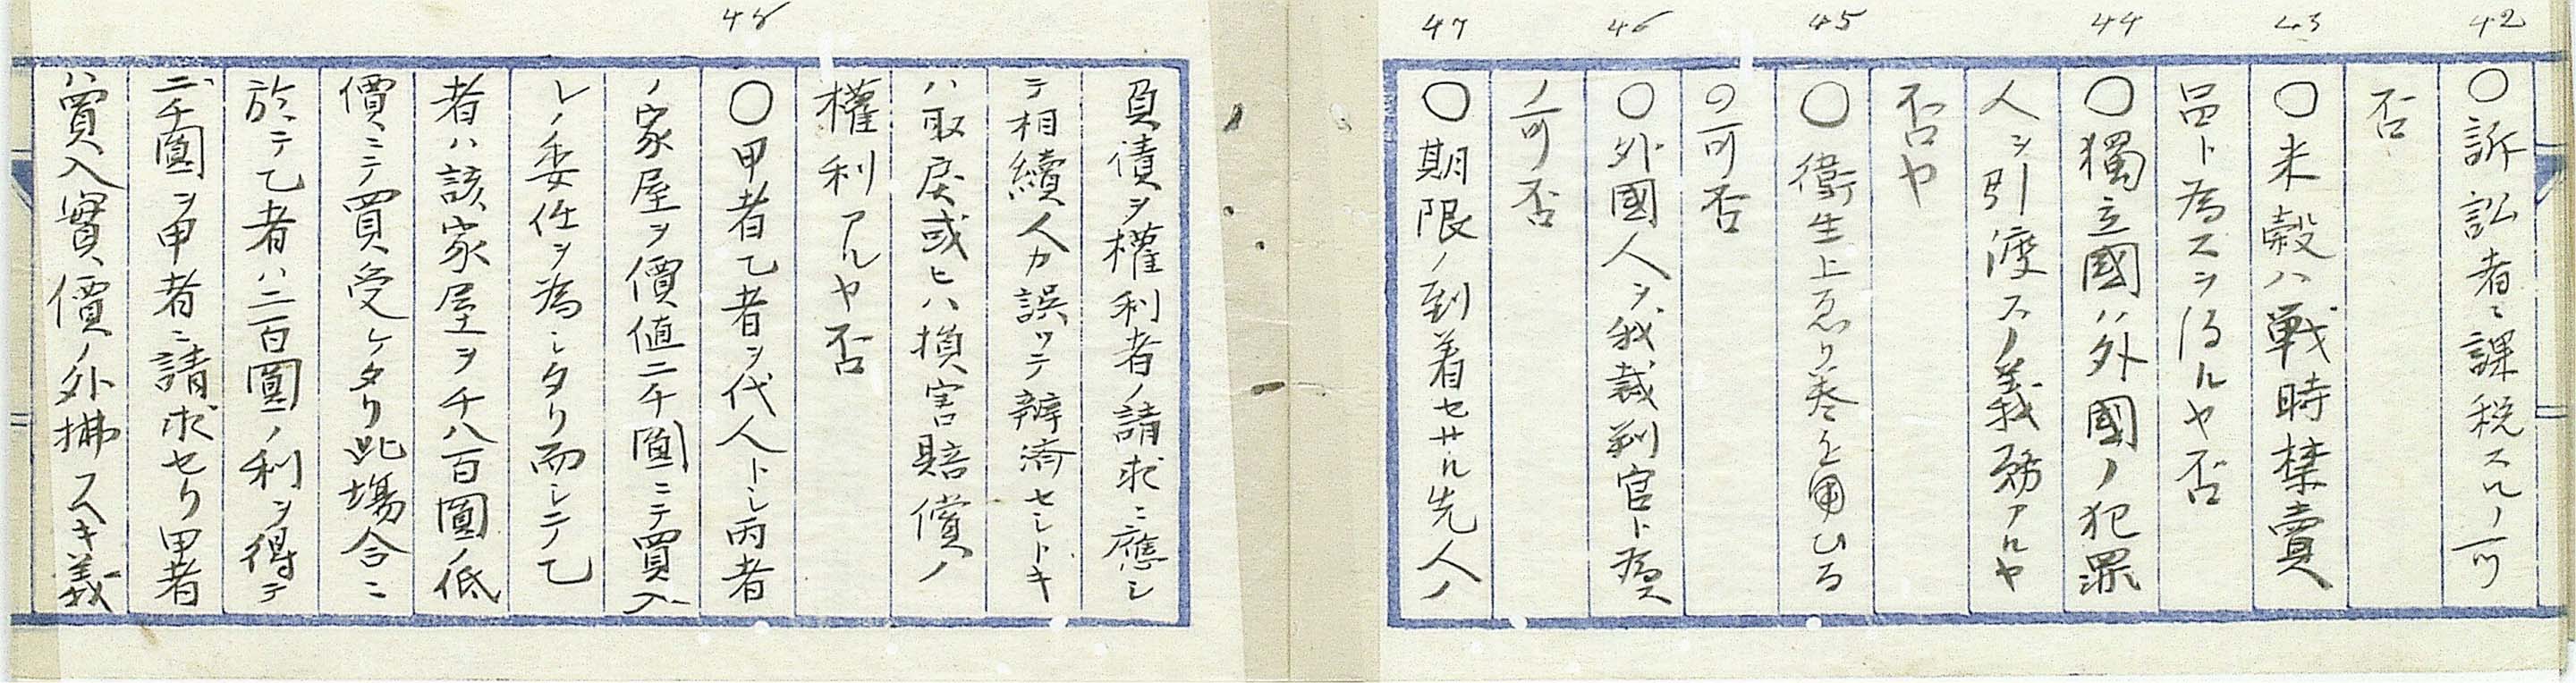 42
○訴訟者ニ課税スルノ可
否
43
○米穀ハ戦時禁賣
品ト為スヲ得ルヤ否
44
○獨立國ハ外國ノ犯罪
人ヲ引渡スノ義務アルヤ
否ヤ
45
○衛生上忍り巻を用ひる
の可否
46
○外國人ヲ我裁判官ト為ス
ノ可否
47
○期限ノ到着セサル先人ノ
負債ヲ權利者ノ請求ニ應シ
テ相續人カ誤ッテ辨済セシトキ
ハ取戻或ヒハ損害賠償ノ
權利アルヤ否
48
○甲者乙者ヲ代人トシ丙者
ノ家屋ヲ價値二千圓ニテ買入
レノ委任ヲ為シタリ而シテ乙
者ハ該家屋ヲ千八百圓ノ低
價ニテ買受ケタリ此場合ニ
於テ乙者ハ二百圓ノ利ヲ得テ
二千圓ヲ甲者ニ請求セリ甲者
ハ買入實價ノ外拂フヘキ義